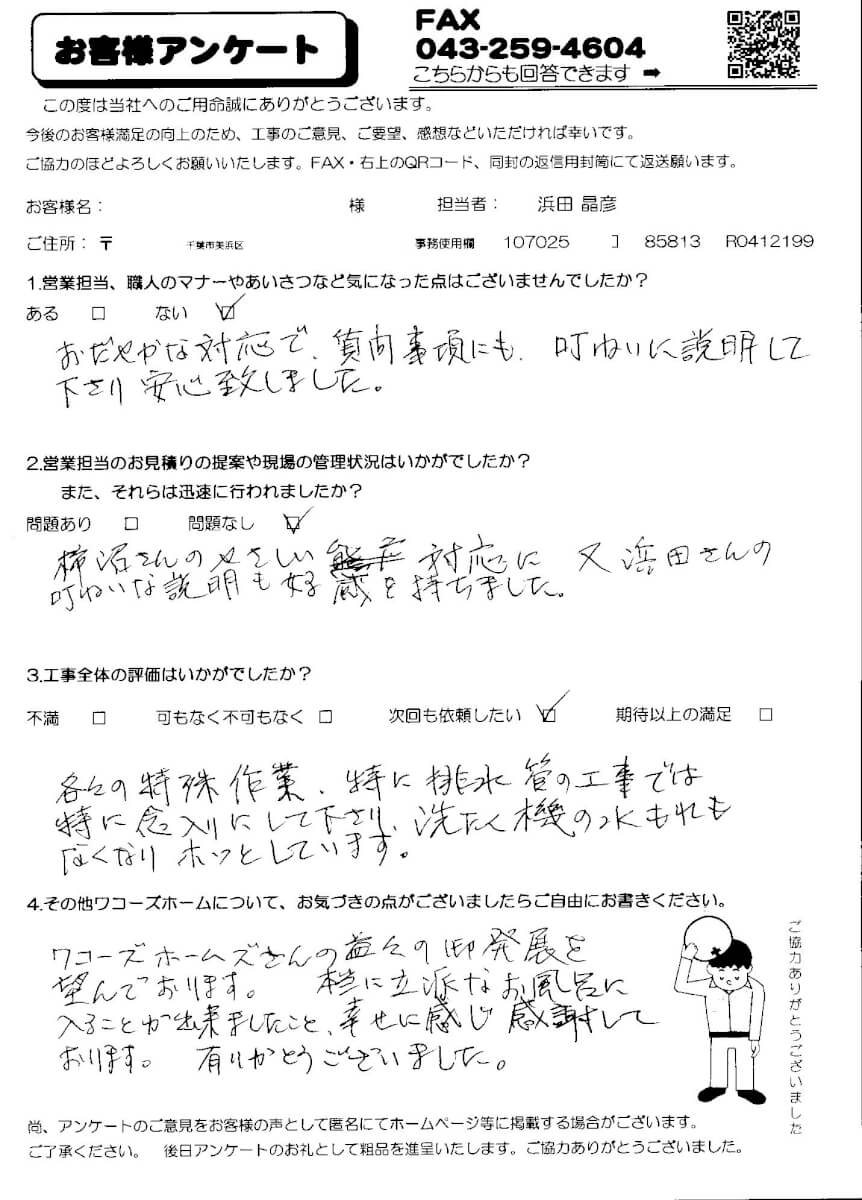 お客様アンケート
FAX
043-259-4604
こちらからも回答できます ➡
この度は当社へのご用命誠にありがとうございます。
今後のお客様満足の向上のため、工事のご意見、ご要望、感想などいただければ幸いです。
ご協力のほどよろしくお願いいたします。FAX・右上のQRコード、同封の返信用封筒にて返送願います。
お客様名: 様 担当者: 浜田 晶彦
ご住所:〒 千葉市美浜区 事務使用欄 107025 ] 85813 R0412199
1.営業担当、職人のマナーやあいさつなど気になった点はございませんでしたか?
ある □ ない ☑
おだやかな対応で、質問事項にも、叮ねいに説明して
下さり安心致しました。
2.営業担当のお見積りの提案や現場の管理状況はいかがでしたか?
また、それらは迅速に行われましたか?
問題あり □ 問題なし ☑
柿沼さんのやさしい 対応に 又浜田さんの
叮ねいな説明も好感を持ちました。
3.工事全体の評価はいかがでしたか?
不満 □ 可もなく不可もなく □ 次回も依頼したい ☑ 期待以上の満足 □
各々の特殊作業、特に排水管の工事では
特に念入りにして下さり、洗たく機の水もれも
なくなりホッとしています。
4.その他ワコーズホームについて、お気づきの点がございましたらご自由にお書きください。
ワコーズホームズさんの益々の御発展を
望んでおります。 本当に立派なお風呂に
入ることが出来ましたこと、幸せに感じ感謝して
おります。 有りがとうございました。
ご協力ありがとうございました
尚、アンケートのご意見をお客様の声として匿名にてホームページ等に掲載する場合がございます。
ご了承ください。 後日アンケートのお礼として粗品を進呈いたします。ご協力ありがとうございました。